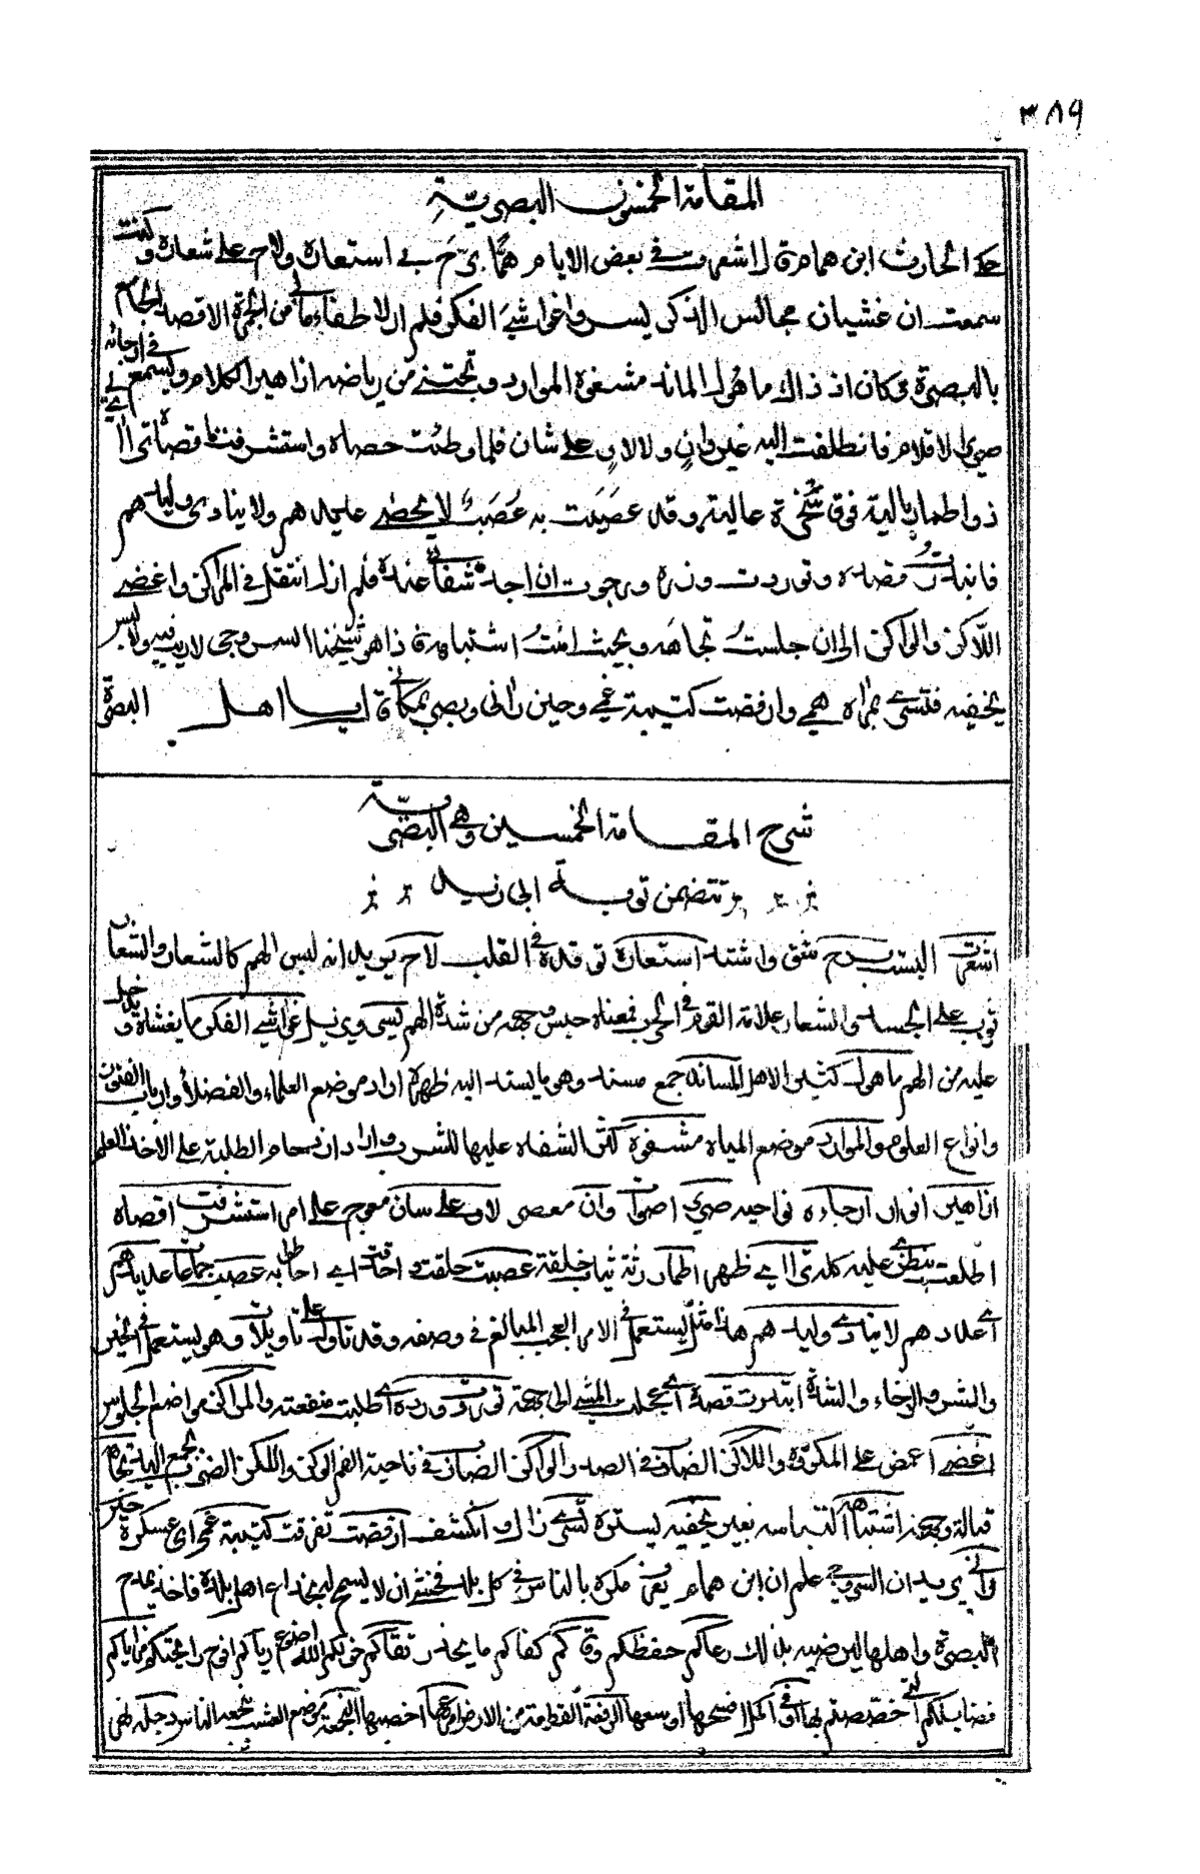 ٣٨٩
المقامة الخمسون البصرية
حكى الحارث ابن همام قال اشعرت في بعض الايام همّا برّح بي استعاره ولاح على شعاره وكنت
سمعت ان غشيان مجالس الذكر يسرو غواشي الفكر فلم ار لاطفاء ما بي من الجمرة الا قصد الجامع
بالبصرة وكان اذ ذاك ماهول المساند مشفوه الموارد يجتنى من رياضه ازاهير الكلام ويسمع في ارجائه
صرير الاقلام فانطلقت اليه غير وانٍ ولا لاوٍ على شان فلما وطئت حصاه واستشرفت اقصاه تراءى لي
ذو اطمار بالية فوق صخرة عالية وقد عصبت به عُصَبٌ لا يحصى عديدهم ولا ينادى وليدهم
فابتدرتُ قصده وتوردت ورده ورجوت ان اجد شفائي عنده فلم ازل انتقل في المراكز واغضي
للاكز والواكز الى ان جلستُ تجاهه وبحيث امنتُ اشتباهه فاذا هو شيخنا السروجي لا ريب فيه ولا لبس
يخفيه فتسرى بمراه همي وارفضت كتيبة غمي وحين راني وبصر بمكاني قال يا اهل البصرة
شرح المقامة الخمسين وهي البصرية
تتضمن توبة ابي زيد
اشعرت البست برح شق واشتد استعاره توقده في القلب لاح يريد انه لبس الهم كالشعار والشعار
ثوب على الجسد والشعار علامة القوم في الحرب فمعناه
عليه من الهم ماهول كثير الاهل المساند جمع مسند وهو ما يستند اليه ظهره اراد موضع العلماء والفضلاء وارباب الفنون
وانواع العلوم والموارد موضع المياه مشفوه كثر الشفاه عليها للشرب واراد ازدحام الطلبة على الاخذ العلم
ازاهير انوار ارجاءه نواحيه صرير اصوات وان معصى لاو على شان معوج على امر استشرفت اقصاه
اطلعت بنظري عليه كله تراءى لي ظهر اطمار رثة ثياب خلقة عصبت حلقت واحدقت اي احاطوا به عصب جماعات عديدهم
اي عددهم لا ينادى وليدهم هذا مثل يستعمل في الامر العجب المبالغ في وصفه وقد تاول على تاويلات وهو يستعمل في الخير
والشر والرخاء والشدة ابتدرت قصده اي عجلت المشي الى جهة توردت ورده اي طلبت منفعته والمراكز مواضع الجلوس
اغضي اغمض على المكروه واللاكز الضارب في الصدر والواكز الضارب في ناحية الفم الوكز واللكز الضرب بجمع اليد تجاه
قبالة وجهه اشتباهه التباسه بعين يخفيه يستره تسرى زال وانكشف ارفضت تفرقت كتيبة غمي اي عسكره حين
راني يريد ان السروجي علم ان ابن همام يعرف مكره بالناس في كل بلد فخشي ان لا يسمح له بخداع اهل بلده فاخذ يمدح
البصرة واهلها ليرضيه بذلك رعاكم حفظكم وقاكم كفاكم ما يحذر تقاكم خوفكم الله اضوع رياكم افوح رائحتكم مزاياكم
فضائلكم التي خصصتم بها اوفى اكملا افسحها اوسعها الرقعة القطعة من الارض امرعها اخصبها النجعة موضع العشب ينتجعه الناس دجلة نهر